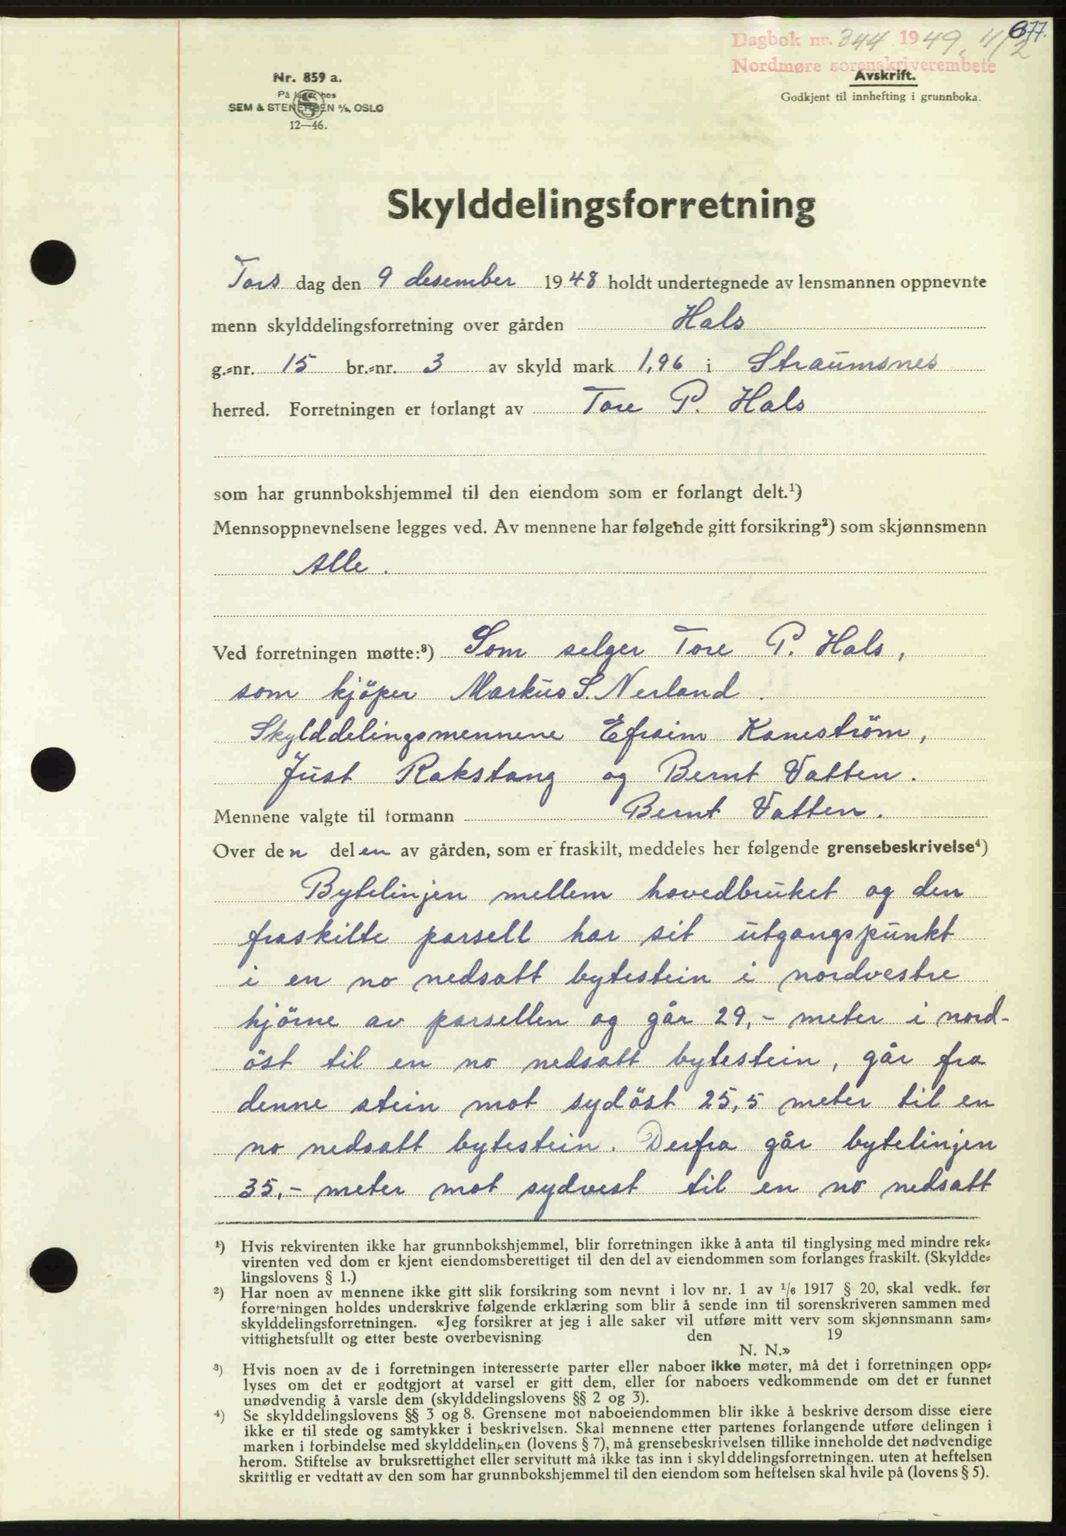 677.
Dagbok nr. 344 1949, 4/2
Nordmøre sorenskriverembete
Nr. 859 a.
På lager hos
SEM & STENERSEN A/S, OSLO
12—46.
Avskrift.
Godkjent til innhefting i grunnboka.
Skylddelingsforretning
Tors dag den 9 desember 1948 holdt undertegnede av lensmannen oppnevnte
menn skylddelingsforretning over gården Hals
g.-nr. 15 br.-nr. 3 av skyld mark 1,96 i Straumsnes
herred. Forretningen er forlangt av Tore P. Hals
som har grunnbokshjemmel til den eiendom som er forlangt delt.¹)
Mennsoppnevnelsene legges ved. Av mennene har følgende gitt forsikring²) som skjønnsmenn
Alle.
Ved forretningen møtte:³) Som selger Tore P. Hals,
som kjöper Markus S. Nerland.
Skylddelingsmennene Efraim Kaneström,
Just Rakstang og Bernt Vatten.
Mennene valgte til formann Bernt Vatten.
Over den delen av gården, som er fraskilt, meddeles her følgende grensebeskrivelse⁴)
Bytelinjen mellem hovedbruket og den
fraskilte parsell har sit utgangspunkt
i en no nedsatt bytestein i nordvestre
hjörne av parsellen og går 29,- meter i nord-
öst til en no nedsatt bytestein, går fra
denne stein mot sydöst 25,5 meter til en
no nedsatt bytestein. Derfra går bytelinjen
35,- meter mot sydvest til en no nedsatt
¹) Hvis rekvirenten ikke har grunnbokshjemmel, blir forretningen ikke å anta til tinglysing med mindre rek-
virenten ved dom er kjent eiendomsberettiget til den del av eiendommen som forlanges fraskilt. (Skyldde-
lingslovens § 1.)
²) Har noen av mennene ikke gitt slik forsikring som nevnt i lov nr. 1 av 1/6 1917 § 20, skal vedk. før
forretningen holdes underskrive følgende erklæring som blir å sende inn til sorenskriveren sammen med
skylddelingsforretningen. «Jeg forsikrer at jeg i alle saker vil utføre mitt verv som skjønnsmann sam-
vittighetsfullt og etter beste overbevisning den 19
N. N.»
³) Hvis noen av de i forretningen interesserte parter eller naboer ikke møter, må det i forretningen opp-
lyses om det er godtgjort at varsel er gitt dem, eller for naboers vedkommende om det er funnet
unødvendig å varsle dem (skylddelingslovens §§ 2 og 3).
⁴) Se skylddelingslovens §§ 3 og 8. Grensene mot naboeiendommen blir ikke å beskrive dersom disse eiere
ikke er til stede og samtykker i beskrivelsen. Skal mennene etter partenes forlangende utføre delingen i
marken i forbindelse med skylddelingen (lovens § 7), må grensebeskrivelsen tillike inneholde det nødvendige
herom. Stiftelse av bruksrettighet eller servitutt må ikke tas inn i skylddelingsforretningen. uten at heftelsen
skriftlig er vedtatt av den som har grunnbokshjemmel til den eiendom som heftelsen skal hvile på (lovens § 5).